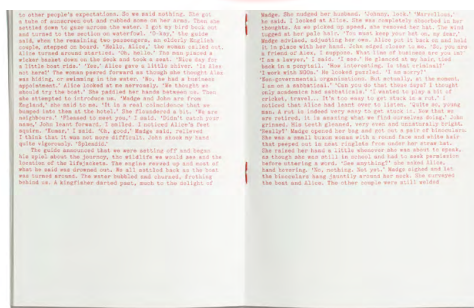 to other people's expectations. So we said nothing. She got
a tube of sunscreen out and rubbed some on her arms. Then she
settled down to gaze across the water. I got my bird book out
and turned to the section on waterfowl. 'O-key,' the guide
said, when the remaining two passengers, an elderly English
couple, stepped on board. 'Hello, Alice,' the woman called out.
Alice turned around startled. 'Oh, hello.' The man placed a
wicker basket down on the deck and took a seat. 'Nice day for
a little boat ride.' 'Yes,' Alice gave a little shiver. 'Is Alec
not here?' The woman peered forward as though she thought Alec
was hiding, or swimming in the water. 'No, he had a business
appointment.' Alice looked at me nervously, 'We thought we
should try the boat.' She paddled her hands between us. Then
she attempted to introduce us. 'Madge and John are from
England,' she said to me. 'It is a real coincidence that we
bumped into them at the hotel.' She floundered on. 'We are
neighbours.' 'Pleased to meet you,' I said. 'Didn't catch your
name,' John leant forward. I smiled. I noticed Alice's feet
squirm. 'Roman,' I said. 'Ah, good,' Madge said, relieved
I think that it was not more difficult. John shook my hand
quite vigorously. 'Splendid.'
The guide announced that we were setting off and began
his spiel about the journey, the wildlife we would see and the
location of the lifejackets. The engine revved up and most of
what he said was drowned out. We all settled back as the boat
was turned around. The water bubbled and churned, frothing
behind us. A kingfisher darted past, much to the delight of
Madge. She nudged her husband. 'Johnny, look.' 'Marvellous,'
he said. I looked at Alice. She was completely absorbed in her
thoughts. As we picked up speed, she removed her hat. The wind
tugged at her pale hair. 'You must keep your hat on, my dear,'
Madge advised, adjusting her own. Alice put it back on and held
it in place with her hand. John edged closer to me. 'So, you are
a friend of Alec, I suppose. What line of business are you in?'
'I'm a lawyer,' I said. 'I see.' He glanced at my hair, tied
back in a ponytail. 'How interesting. Is that criminal?'
'I work with NGOs.' He looked puzzled, 'I am sorry?'
'Non-governmental organisations. But actually, at the moment,
I am on a sabbatical.' 'Can you do that these days? I thought
only academics had sabbaticals.' 'I wanted to see a bit of
cricket, travel... It's too easy to get stuck in a rut.' I
noticed that Alice had leant over to listen. 'Quite so, young
man. A rut is indeed very easy to get stuck in. Now that we
are retired, it is amazing what we find ourselves doing.' John
grinned. His teeth gleamed, very even and unnaturally bright.
'Really?' Madge opened her bag and got out a pair of binoculars.
She was a small human woman with a round face and white hair
that peeped out in neat ringlets from under her straw hat.
She raised her hand a little whenever she was about to speak,
as though she was still in school and had to seek permission
before uttering a word. 'See anything?' she asked Alice,
hand hovering. 'No, nothing. Not yet.' Madge sighed and let
the binoculars hang jauntily around her neck. She surveyed
the boat and Alice. The other couple were still welded